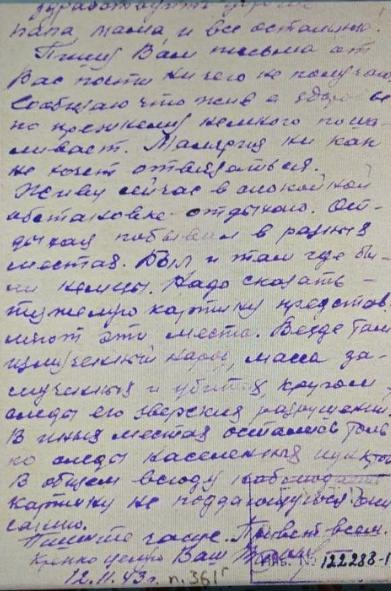 здравствуйте дорогие
папа мама и все остальные.
Пишу Вам письма от
Вас почти ничего не получаю
Сообщаю что жив а здоровье
по прежнему немного поша-
ливает. Малярия ни как
не хочет отвязаться.
Живу сейчас в спокойной
обстановке отдыхаю. От-
дыхая побывал в разных
местах. Был и там где бы-
ли немцы. Надо сказать -
тяжелую картину представ
ляют эти места. Везде там
измученный народ, масса за-
мученных и убитых, кругом
следы его зверских разрушений
В иных местах остались толь
ко следы населенных пунктов
В общем всюду наблюдает
картину не поддающуюся опи
санию.
Пишите чаще. Привет всем.
Крепко целую Ваш
12.11.43г. п. 361г
Инв. № 122288-1